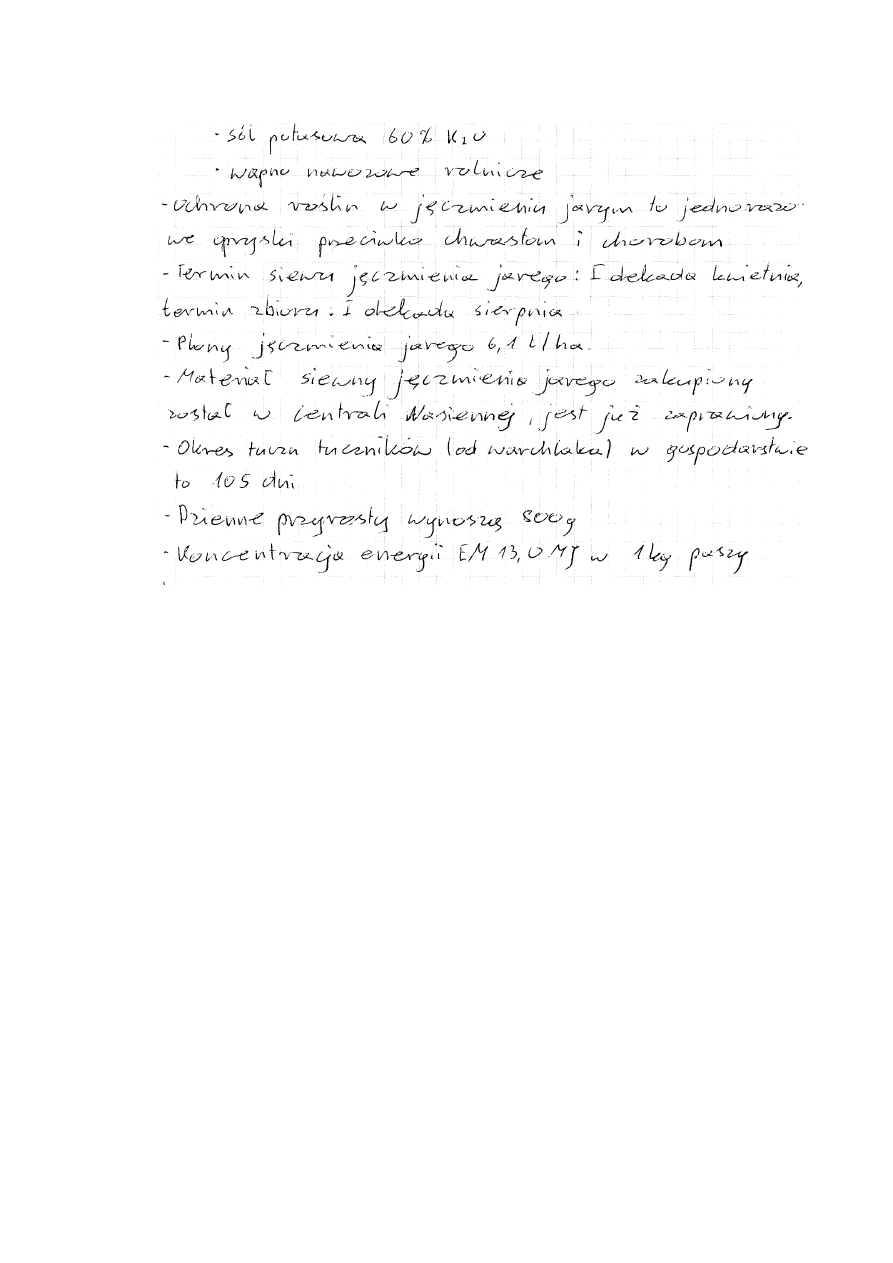 · sól potasowa 60% K₂O
· wapno nawozowe rolnicze
- Ochrona roślin w jęczmieniu jarym to jednorazo-
we opryski przeciwko chwastom i chorobom
- Termin siewu jęczmienia jarego: I dekada kwietnia,
termin zbioru: I dekada sierpnia
- Plony jęczmienia jarego 6,1 t/ha.
- Materiał siewny jęczmienia jarego zakupiony
został w Centrali Nasiennej, jest już zaprawiony.
- Okres tuczu tuczników (od warchlaka) w gospodarstwie
to 105 dni
- Dzienne przyrosty wynoszą 800g
- Koncentracja energii EM 13,0 MJ w 1kg paszy